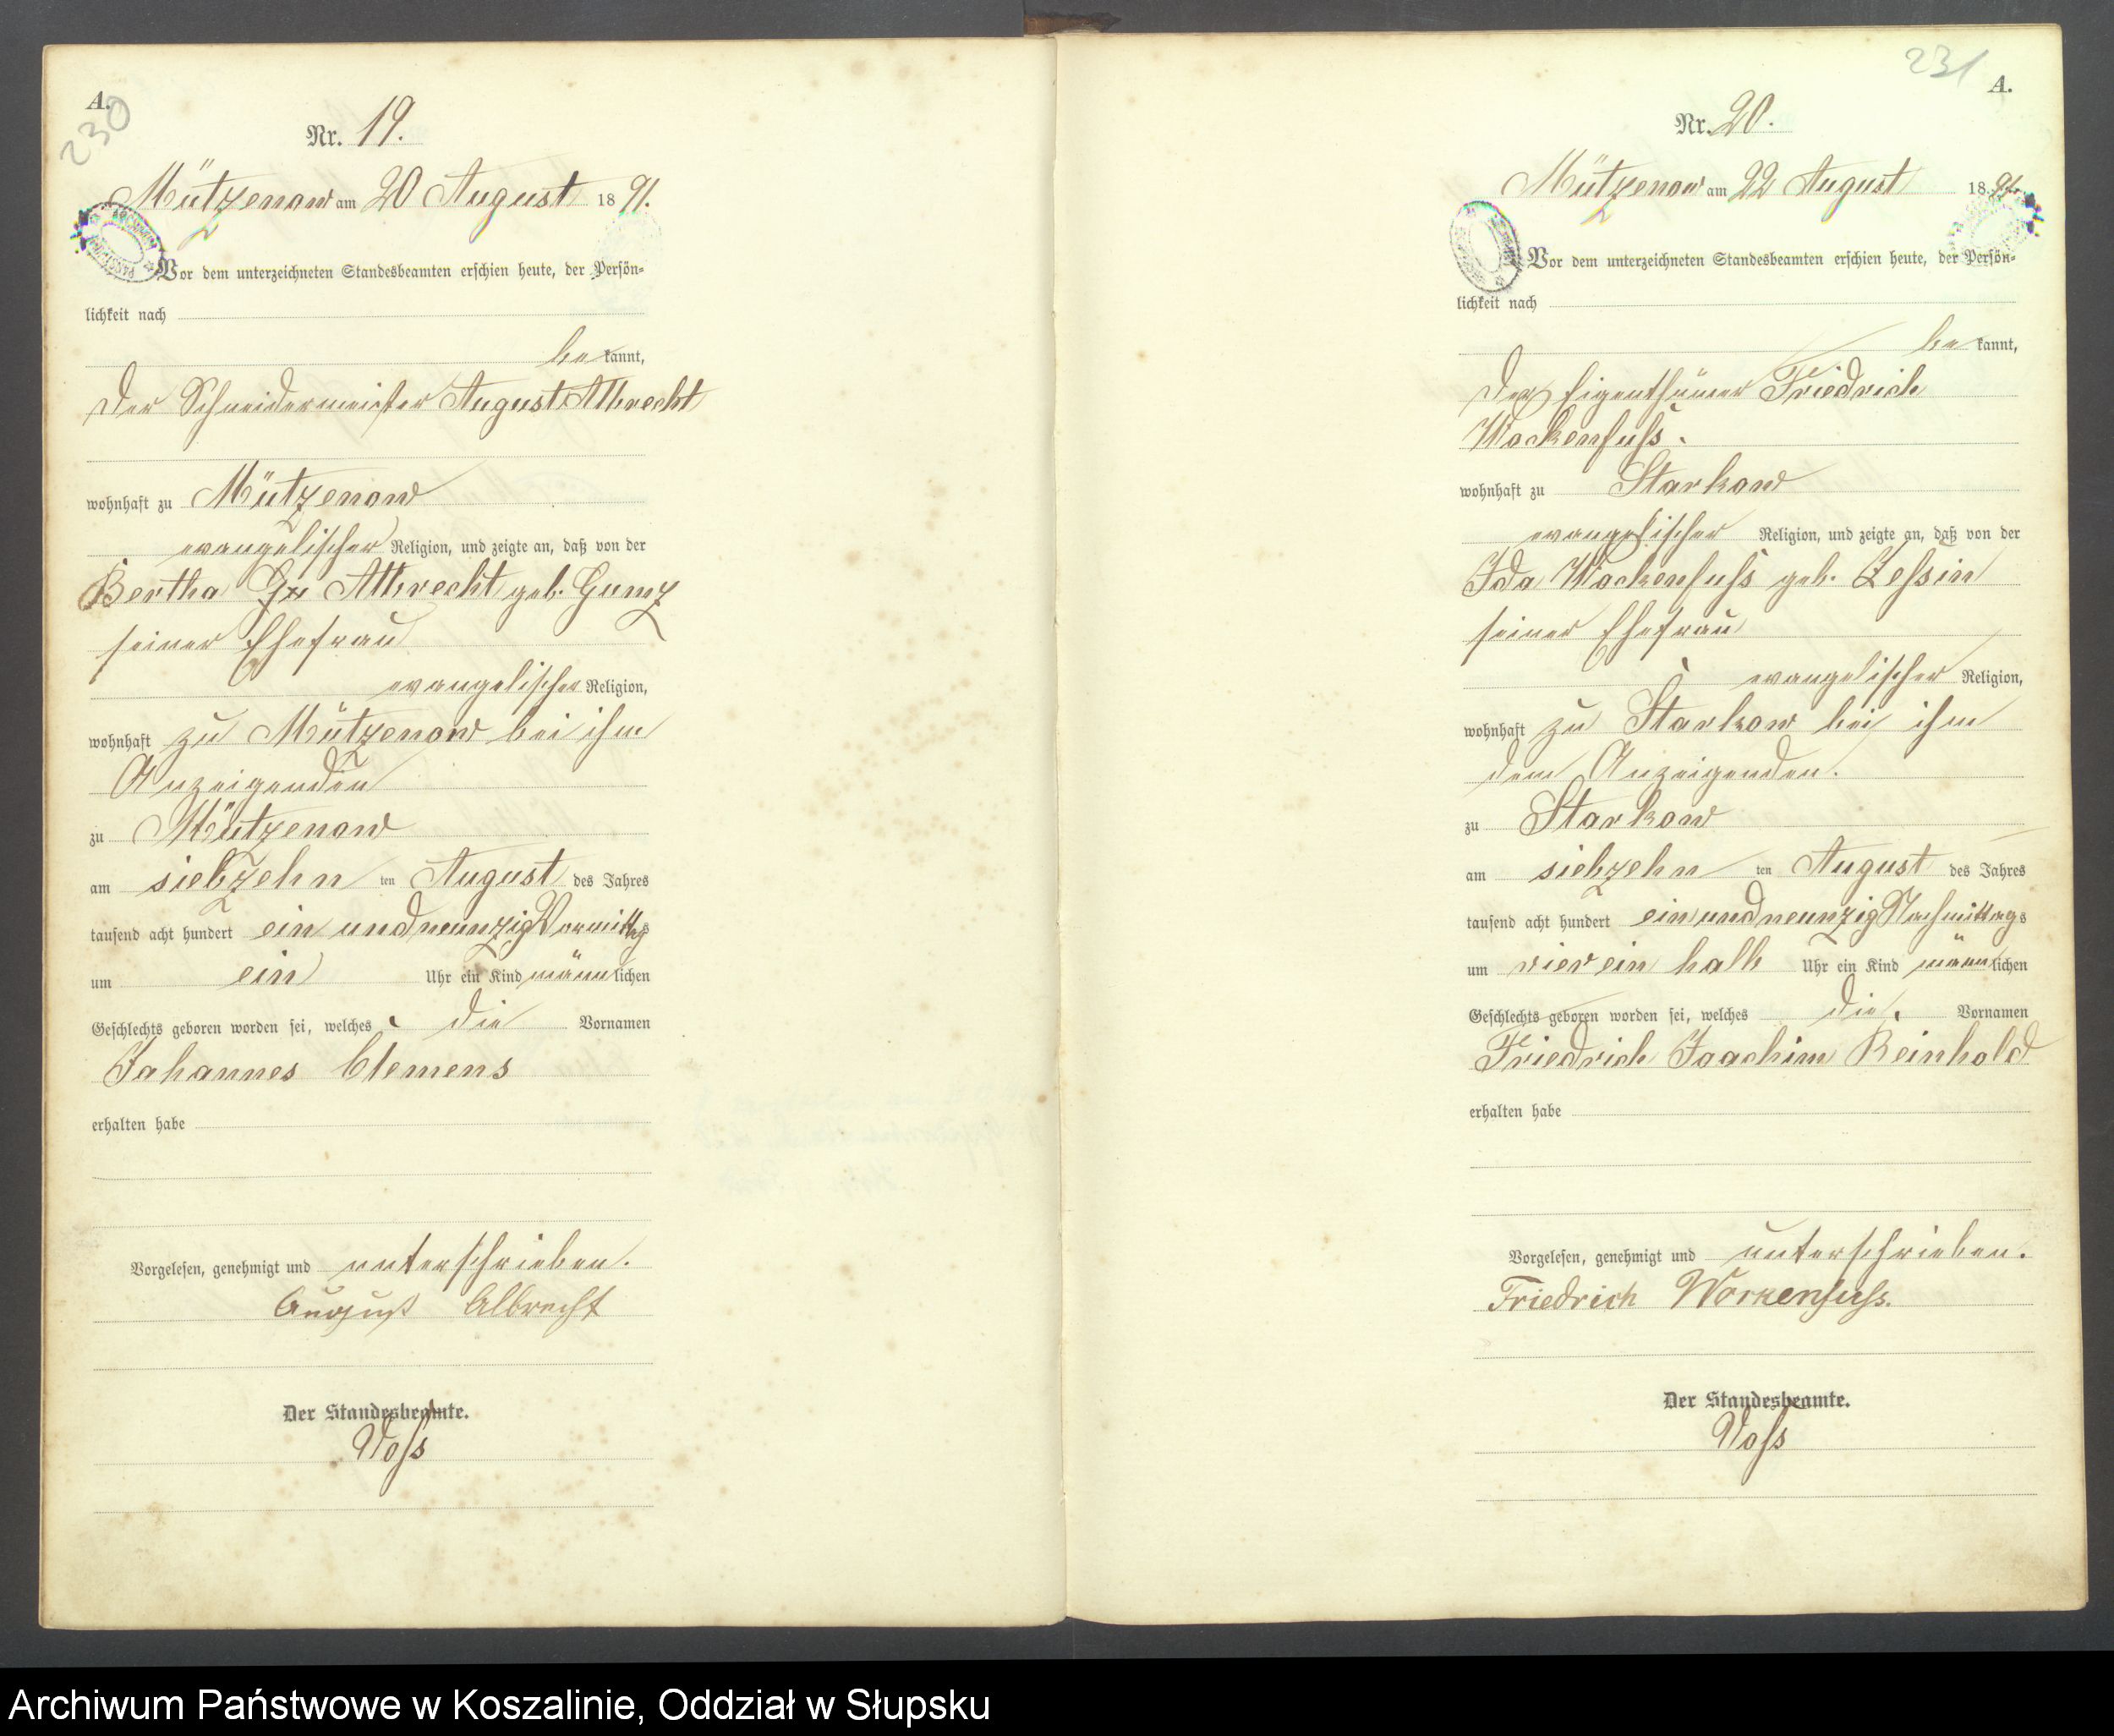 A.
230
Nr. 19.
Mützenow am 20 August 1891.
Vor dem unterzeichneten Standesbeamten erschien heute, der Persön=
lichkeit nach
be kannt,
der Schneidermeister August Albrecht
wohnhaft zu Mützenow
evangelischer Religion, und zeigte an, daß von der
Bertha Albrecht geb. Gumz
seiner Ehefrau
evangelischer Religion,
wohnhaft zu Mützenow bei ihm
Anzeigenden
zu Mützenow
am siebzehn ten August des Jahres
tausend acht hundert ein und neunzig Vormittags
um ein Uhr ein Kind männlichen
Geschlechts geboren worden sei, welches die Vornamen
Johannes Clemens
erhalten habe
Vorgelesen, genehmigt und unterschrieben.
August Albrecht
Der Standesbeamte.
Voß
231
A.
Nr. 20.
Mützenow am 22 August 1891.
Vor dem unterzeichneten Standesbeamten erschien heute, der Persön=
lichkeit nach
be kannt,
der Eigenthümer Friedrich
Wockenfuß.
wohnhaft zu Starkow
evangelischer Religion, und zeigte an, daß von der
Ida Wockenfuß geb. Zessin
seiner Ehefrau
evangelischer Religion,
wohnhaft zu Starkow bei ihm
dem Anzeigenden.
zu Starkow
am siebzehn ten August des Jahres
tausend acht hundert ein und neunzig Nachmittags
um vier ein halb Uhr ein Kind männlichen
Geschlechts geboren worden sei, welches die Vornamen
Friedrich Joachim Reinhold
erhalten habe
Vorgelesen, genehmigt und unterschrieben.
Friedrich Wockenfuß.
Der Standesbeamte.
Voß
Archiwum Państwowe w Koszalinie, Oddział w Słupsku